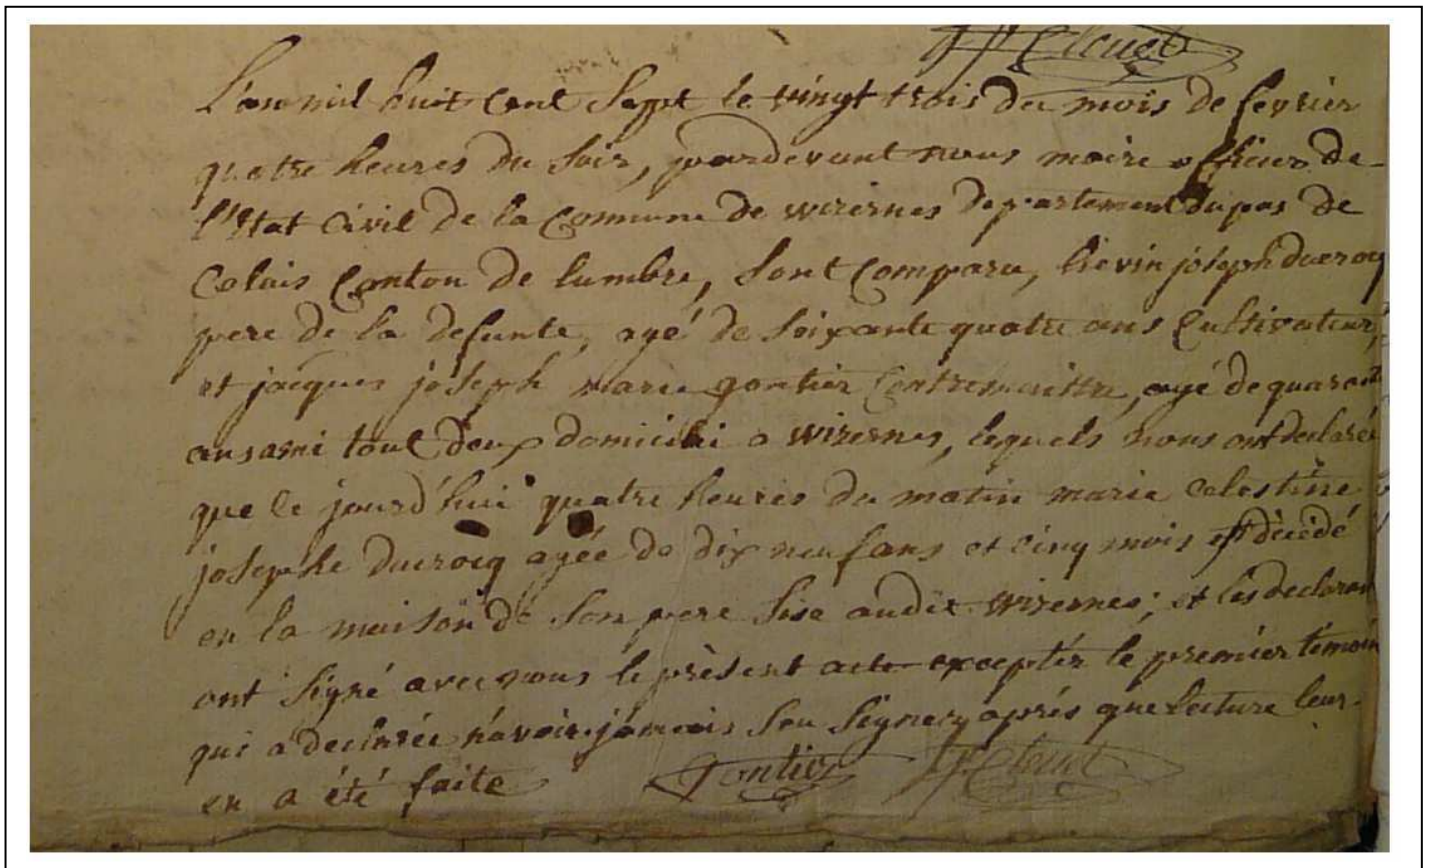 Clouet
L'an mil huit cent Sept le vingt trois du mois de fevrier
quatre heures du Soir, pardevant nous maire officier de
l'Etat Civil de la Commune de wizernes departement du pas de
Calais Canton de lumbre, Sont Comparu, lievin joseph ducrocq
pere de la defunte, agé de Soixante quatre ans Cultivateur,
et jacques joseph marie gontier Contremaittre, agé de quarante
ans ami tout deux domicilié a wizernes, lequels nous ont declarée
que ce jourd'hui quatre heures du matin marie celestine
josephe ducrocq agée de dix neuf ans et cinq mois est décédé
en la maison de Son pere Sise audit wizernes; et les declarant
ont Signé avec nous le présent acte exceptér le premiér témoin
qui a declarée n'avoir jamais Seu Signer, aprés que lecture leur
en a été faite Gontier Clouet